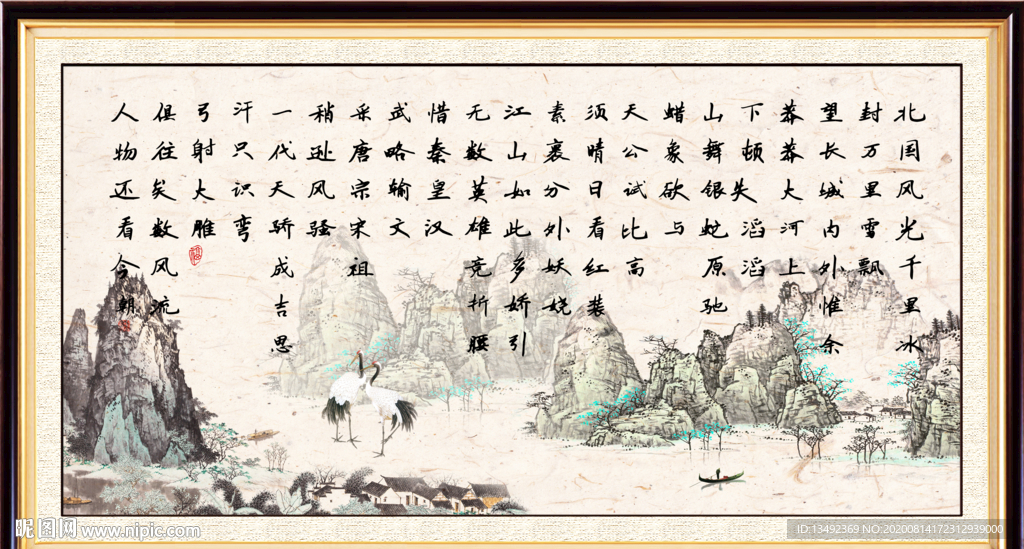 北国风光千里冰
封万里雪飘
望长城内外惟余
莽莽大河上
下顿失滔滔
山舞银蛇原驰
蜡象欲与
天公试比高
须晴日看红装
素裹分外妖娆
江山如此多娇引
无数英雄竞折腰
惜秦皇汉
武略输文
采唐宗宋祖
稍逊风骚
一代天骄成吉思
汗只识弯
弓射大雕
俱往矣数风流
人物还看今朝
昵图网 www.nipic.com
ID:13492369 NO:20200814172312939000